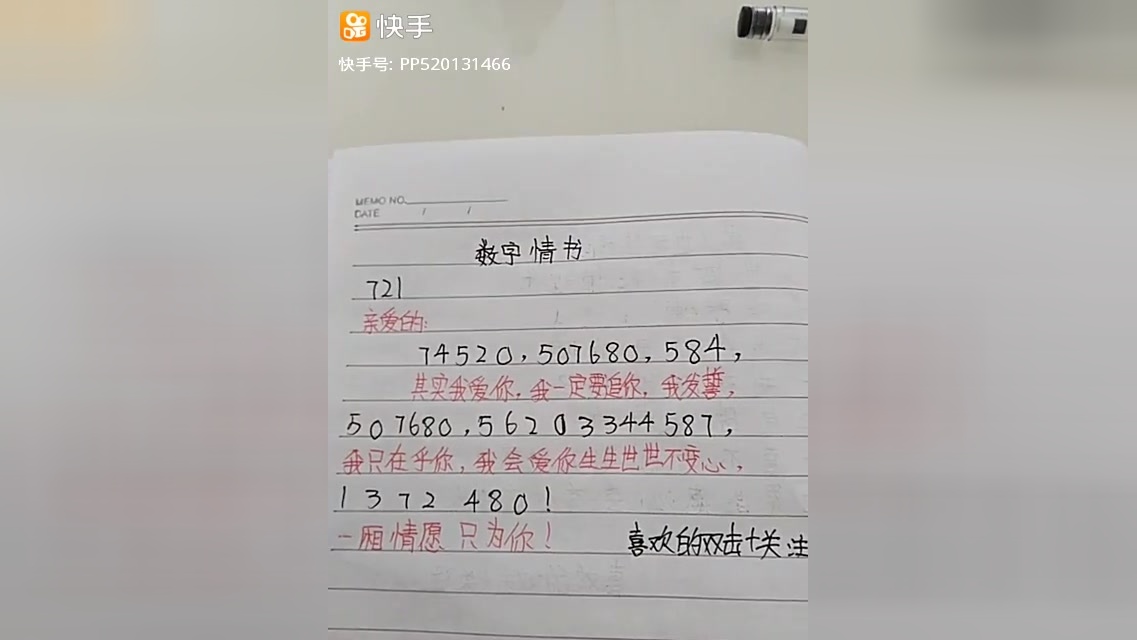 快手
快手号: PP520131466
MEMO NO.
DATE / /
数字情书
721
亲爱的:
74520,507680,584,
其实我爱你,我一定要追你,我发誓,
507680,56203344587,
我只在乎你,我会爱你生生世世不变心,
1372 480!
一厢情愿 只为你!
喜欢的双击+关注